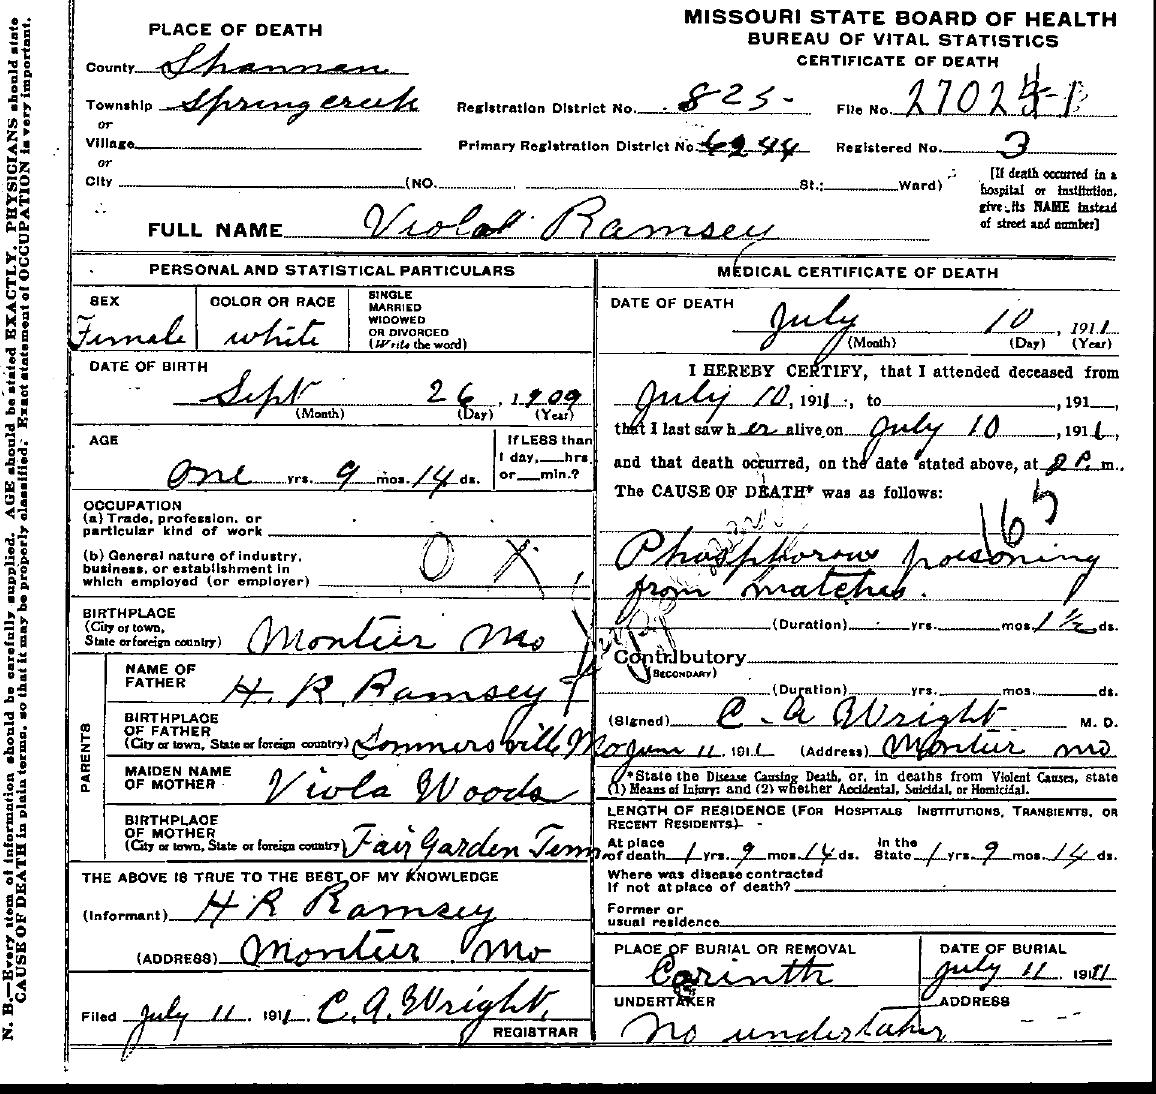 MISSOURI STATE BOARD OF HEALTH
BUREAU OF VITAL STATISTICS
CERTIFICATE OF DEATH
PLACE OF DEATH
County Shannon
Township Springcreek
or
Village
or
City (NO. St.; Ward)
Registration District No. 825-
File No. 27024-B
Primary Registration District No. 6244
Registered No. 3
[If death occurred in a
hospital or institution,
give its NAME instead
of street and number]
FULL NAME Viola Ramsey
PERSONAL AND STATISTICAL PARTICULARS
SEX
Female
COLOR OR RACE
white
SINGLE
MARRIED
WIDOWED
OR DIVORCED
(Write the word)
DATE OF BIRTH
Sept 26, 1909
(Month) (Day) (Year)
AGE
one yrs. 9 mos. 14 ds.
If LESS than
1 day, hrs.
or min.?
OCCUPATION
(a) Trade, profession, or
particular kind of work
(b) General nature of industry,
business, or establishment in
which employed (or employer)
O X
BIRTHPLACE
(City or town,
State or foreign country) Montier Mo
PARENTS
NAME OF
FATHER
H. R. Ramsey
BIRTHPLACE
OF FATHER
(City or town, State or foreign country) Sommersville Mo
MAIDEN NAME
OF MOTHER Viola Woods
BIRTHPLACE
OF MOTHER
(City or town, State or foreign country) Fair Garden Tenn
THE ABOVE IS TRUE TO THE BEST OF MY KNOWLEDGE
(Informant) H R Ramsey
(ADDRESS) Montier Mo
Filed July 11 1911 C. A. Wright,
REGISTRAR
MEDICAL CERTIFICATE OF DEATH
DATE OF DEATH
July 10, 1911
(Month) (Day) (Year)
I HEREBY CERTIFY, that I attended deceased from
July 10, 1911, to , 191 ,
that I last saw her alive on July 10, 1911,
and that death occurred, on the date stated above, at 2 P. m.
The CAUSE OF DEATH* was as follows:
165
Phosphorous poisoning
from matches.
(Duration) yrs. mos. 1½ ds.
Contributory
(SECONDARY)
(Duration) yrs. mos. ds.
(Signed) C. A Wright M. D.
June 11, 1911 (Address) Montier Mo
*State the Disease Causing Death, or, in deaths from Violent Causes, state
(1) Means of Injury; and (2) whether Accidental, Suicidal, or Homicidal.
LENGTH OF RESIDENCE (FOR HOSPITALS INSTITUTIONS, TRANSIENTS, OR
RECENT RESIDENTS)
At place
of death 1 yrs. 9 mos. 14 ds.
In the
State 1 yrs. 9 mos. 14 ds.
Where was disease contracted
if not at place of death?
Former or
usual residence
PLACE OF BURIAL OR REMOVAL
Corinth
DATE OF BURIAL
July 11 1911
UNDERTAKER
No undertaker
ADDRESS
N. B.—Every item of information should be carefully supplied. AGE should be stated EXACTLY. PHYSICIANS should state
CAUSE OF DEATH in plain terms, so that it may be properly classified. Exact statement of OCCUPATION is very important.